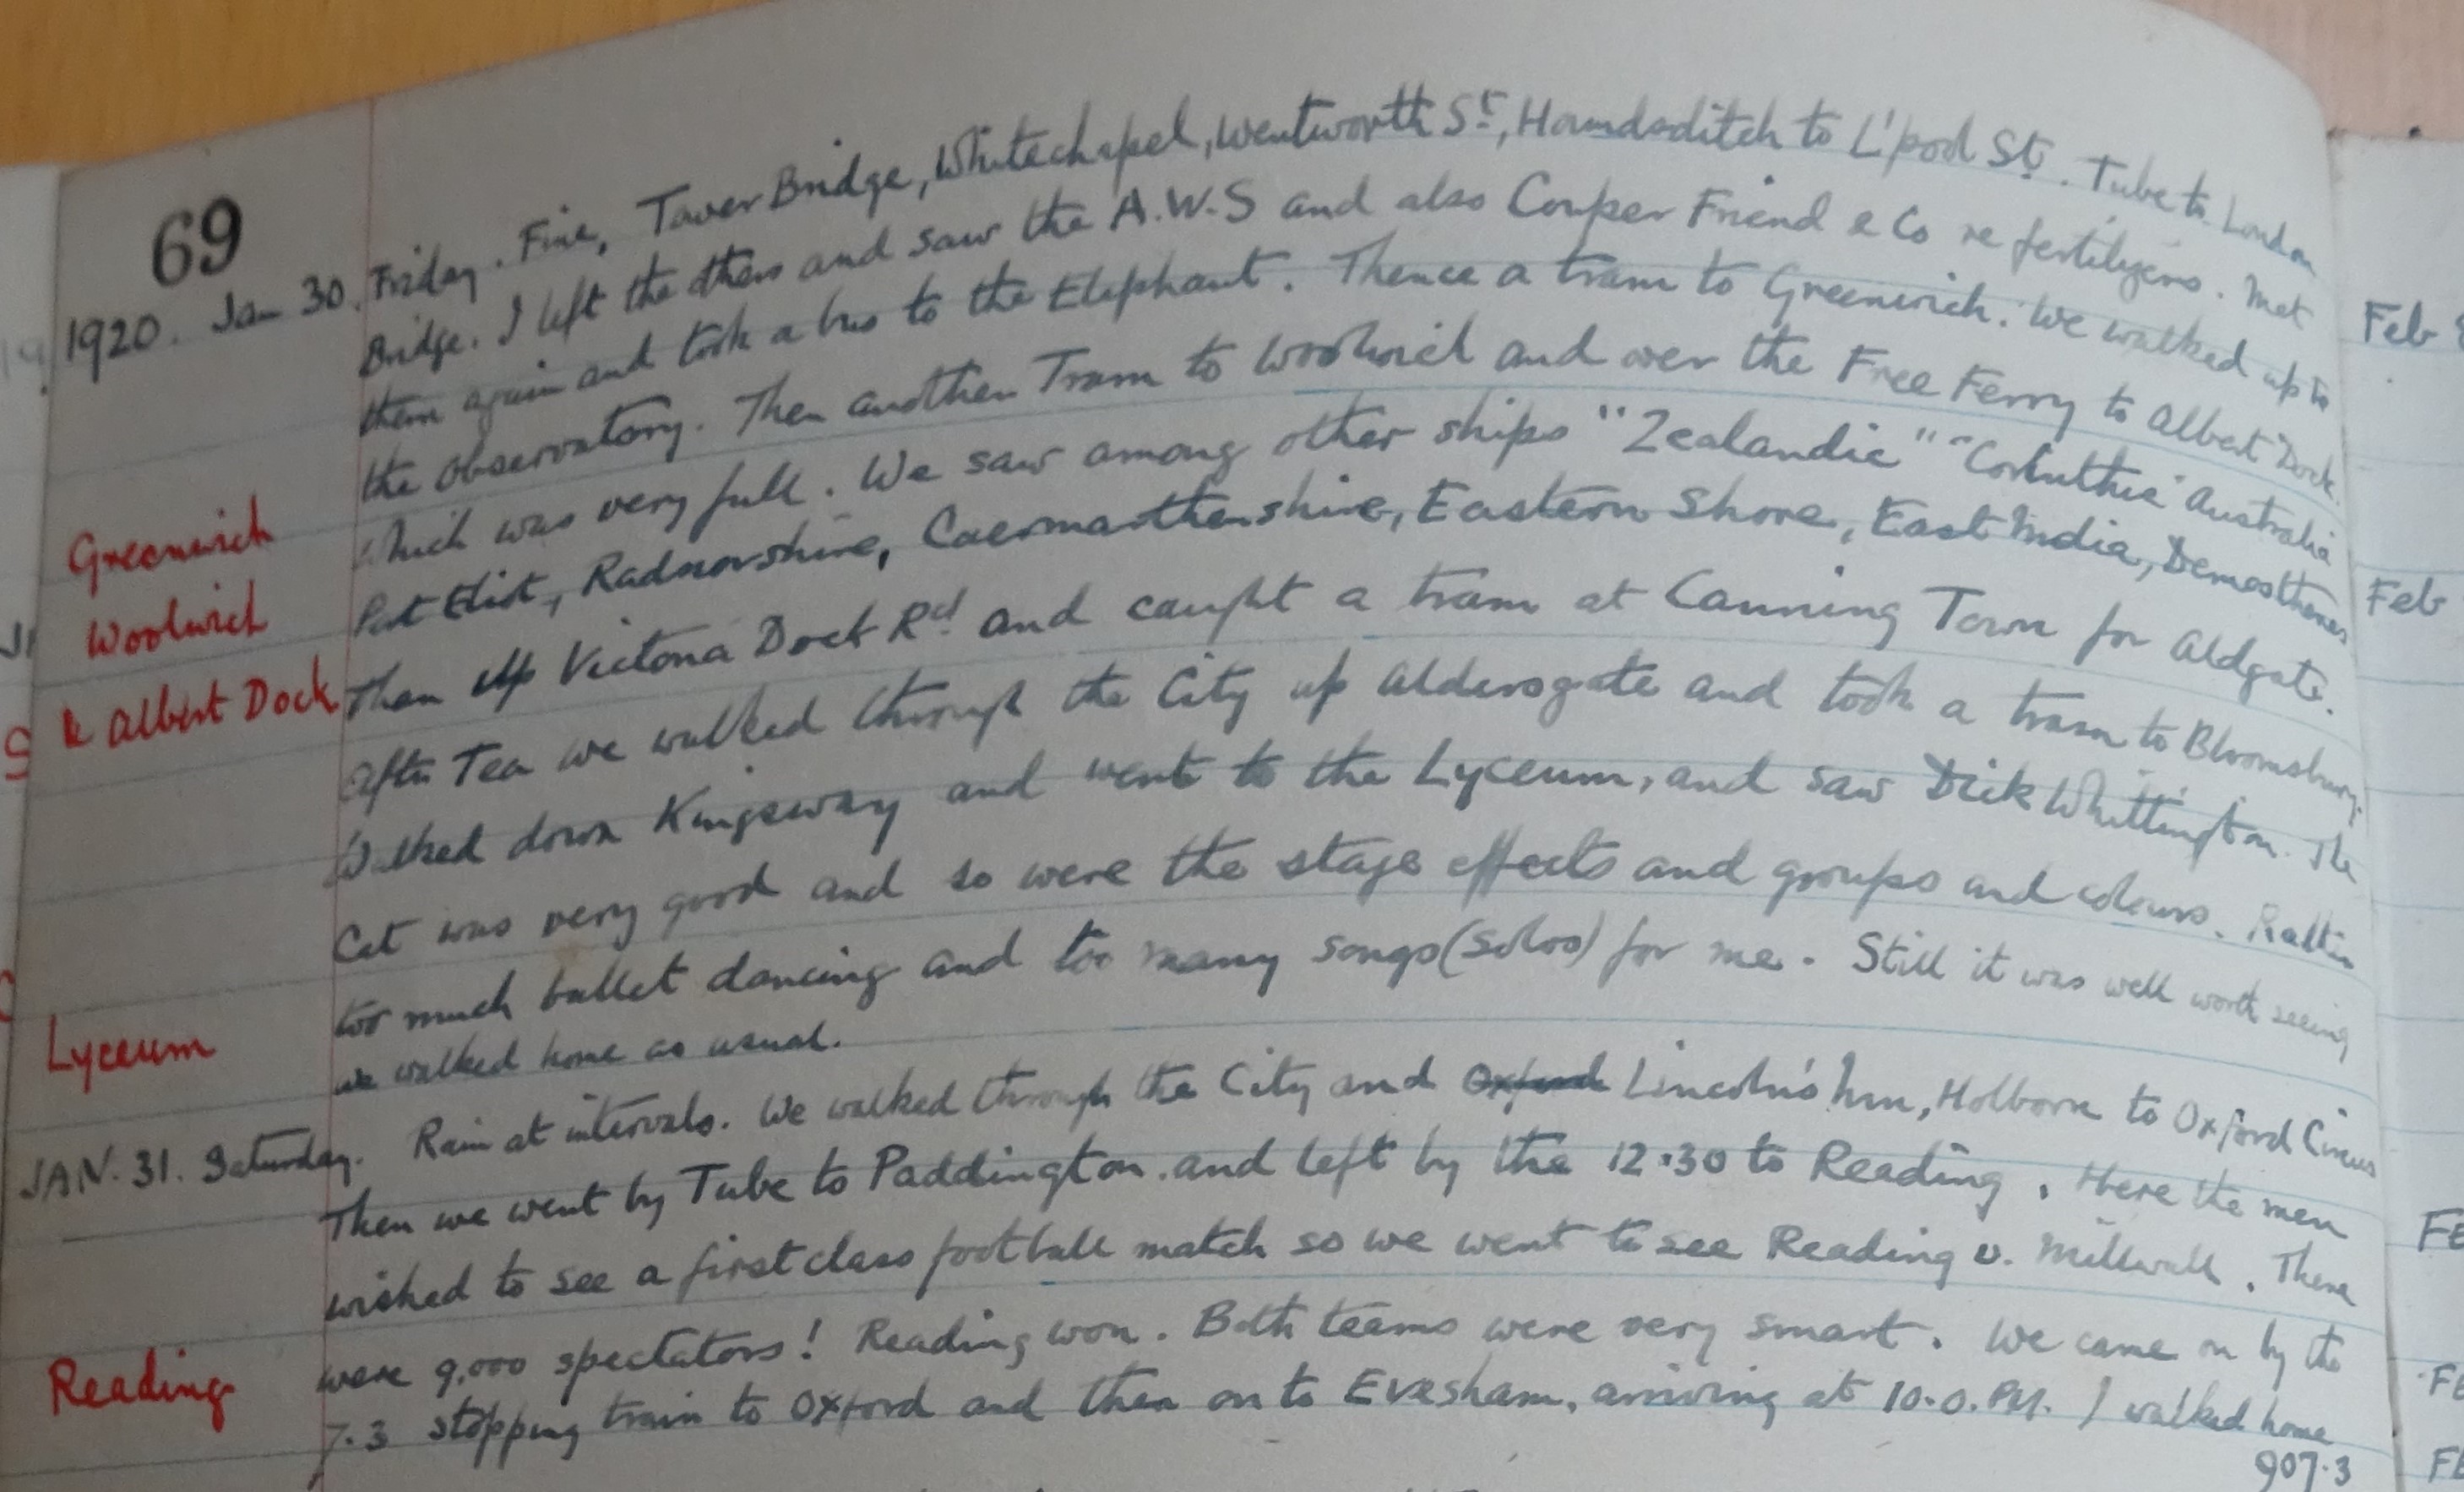 69
1920. Jan 30. Friday. Fine, Tower Bridge, Whitechapel, Wentworth St, Houndsditch to L'pool St. Tube to London
Bridge. I left the others and saw the A.W.S and also Couper Friend & Co re fertilizers. Met
them again and took a bus to the Elephant. Thence a tram to Greenwich. We walked up to
the Observatory. Then another Tram to Woolwich and over the Free Ferry to Albert Dock.
Greenwich
which was very full. We saw among other ships "Zealandic" "Corinthic" Australia
Woolwich
Port Eliot, Radnorshire, Caermarthenshire, Eastern Shore, East India, Demosthenes
& Albert Dock
Then up Victoria Dock Rd and caught a tram at Canning Town for Aldgate.
After Tea we walked through the City up Aldersgate and took a tram to Bloomsbury.
Walked down Kingsway and went to the Lyceum, and saw Dick Whittington. The
Cat was very good and so were the stage effects and groups and colours. Rather
too much ballet dancing and too many songs (solos) for me. Still it was well worth seeing
Lyceum
we walked home as usual.
JAN. 31. Saturday. Rain at intervals. We walked through the City and Oxford Lincoln's Inn, Holborn to Oxford Circus
Then we went by Tube to Paddington and left by the 12.30 to Reading. Here the men
wished to see a first class football match so we went to see Reading v. Millwall. There
Reading
were 9,000 spectators! Reading won. Both teams were very smart. We came on by the
7.3 stopping train to Oxford and then on to Evesham, arriving at 10.0. P.M. I walked home
907.3
Feb
Feb